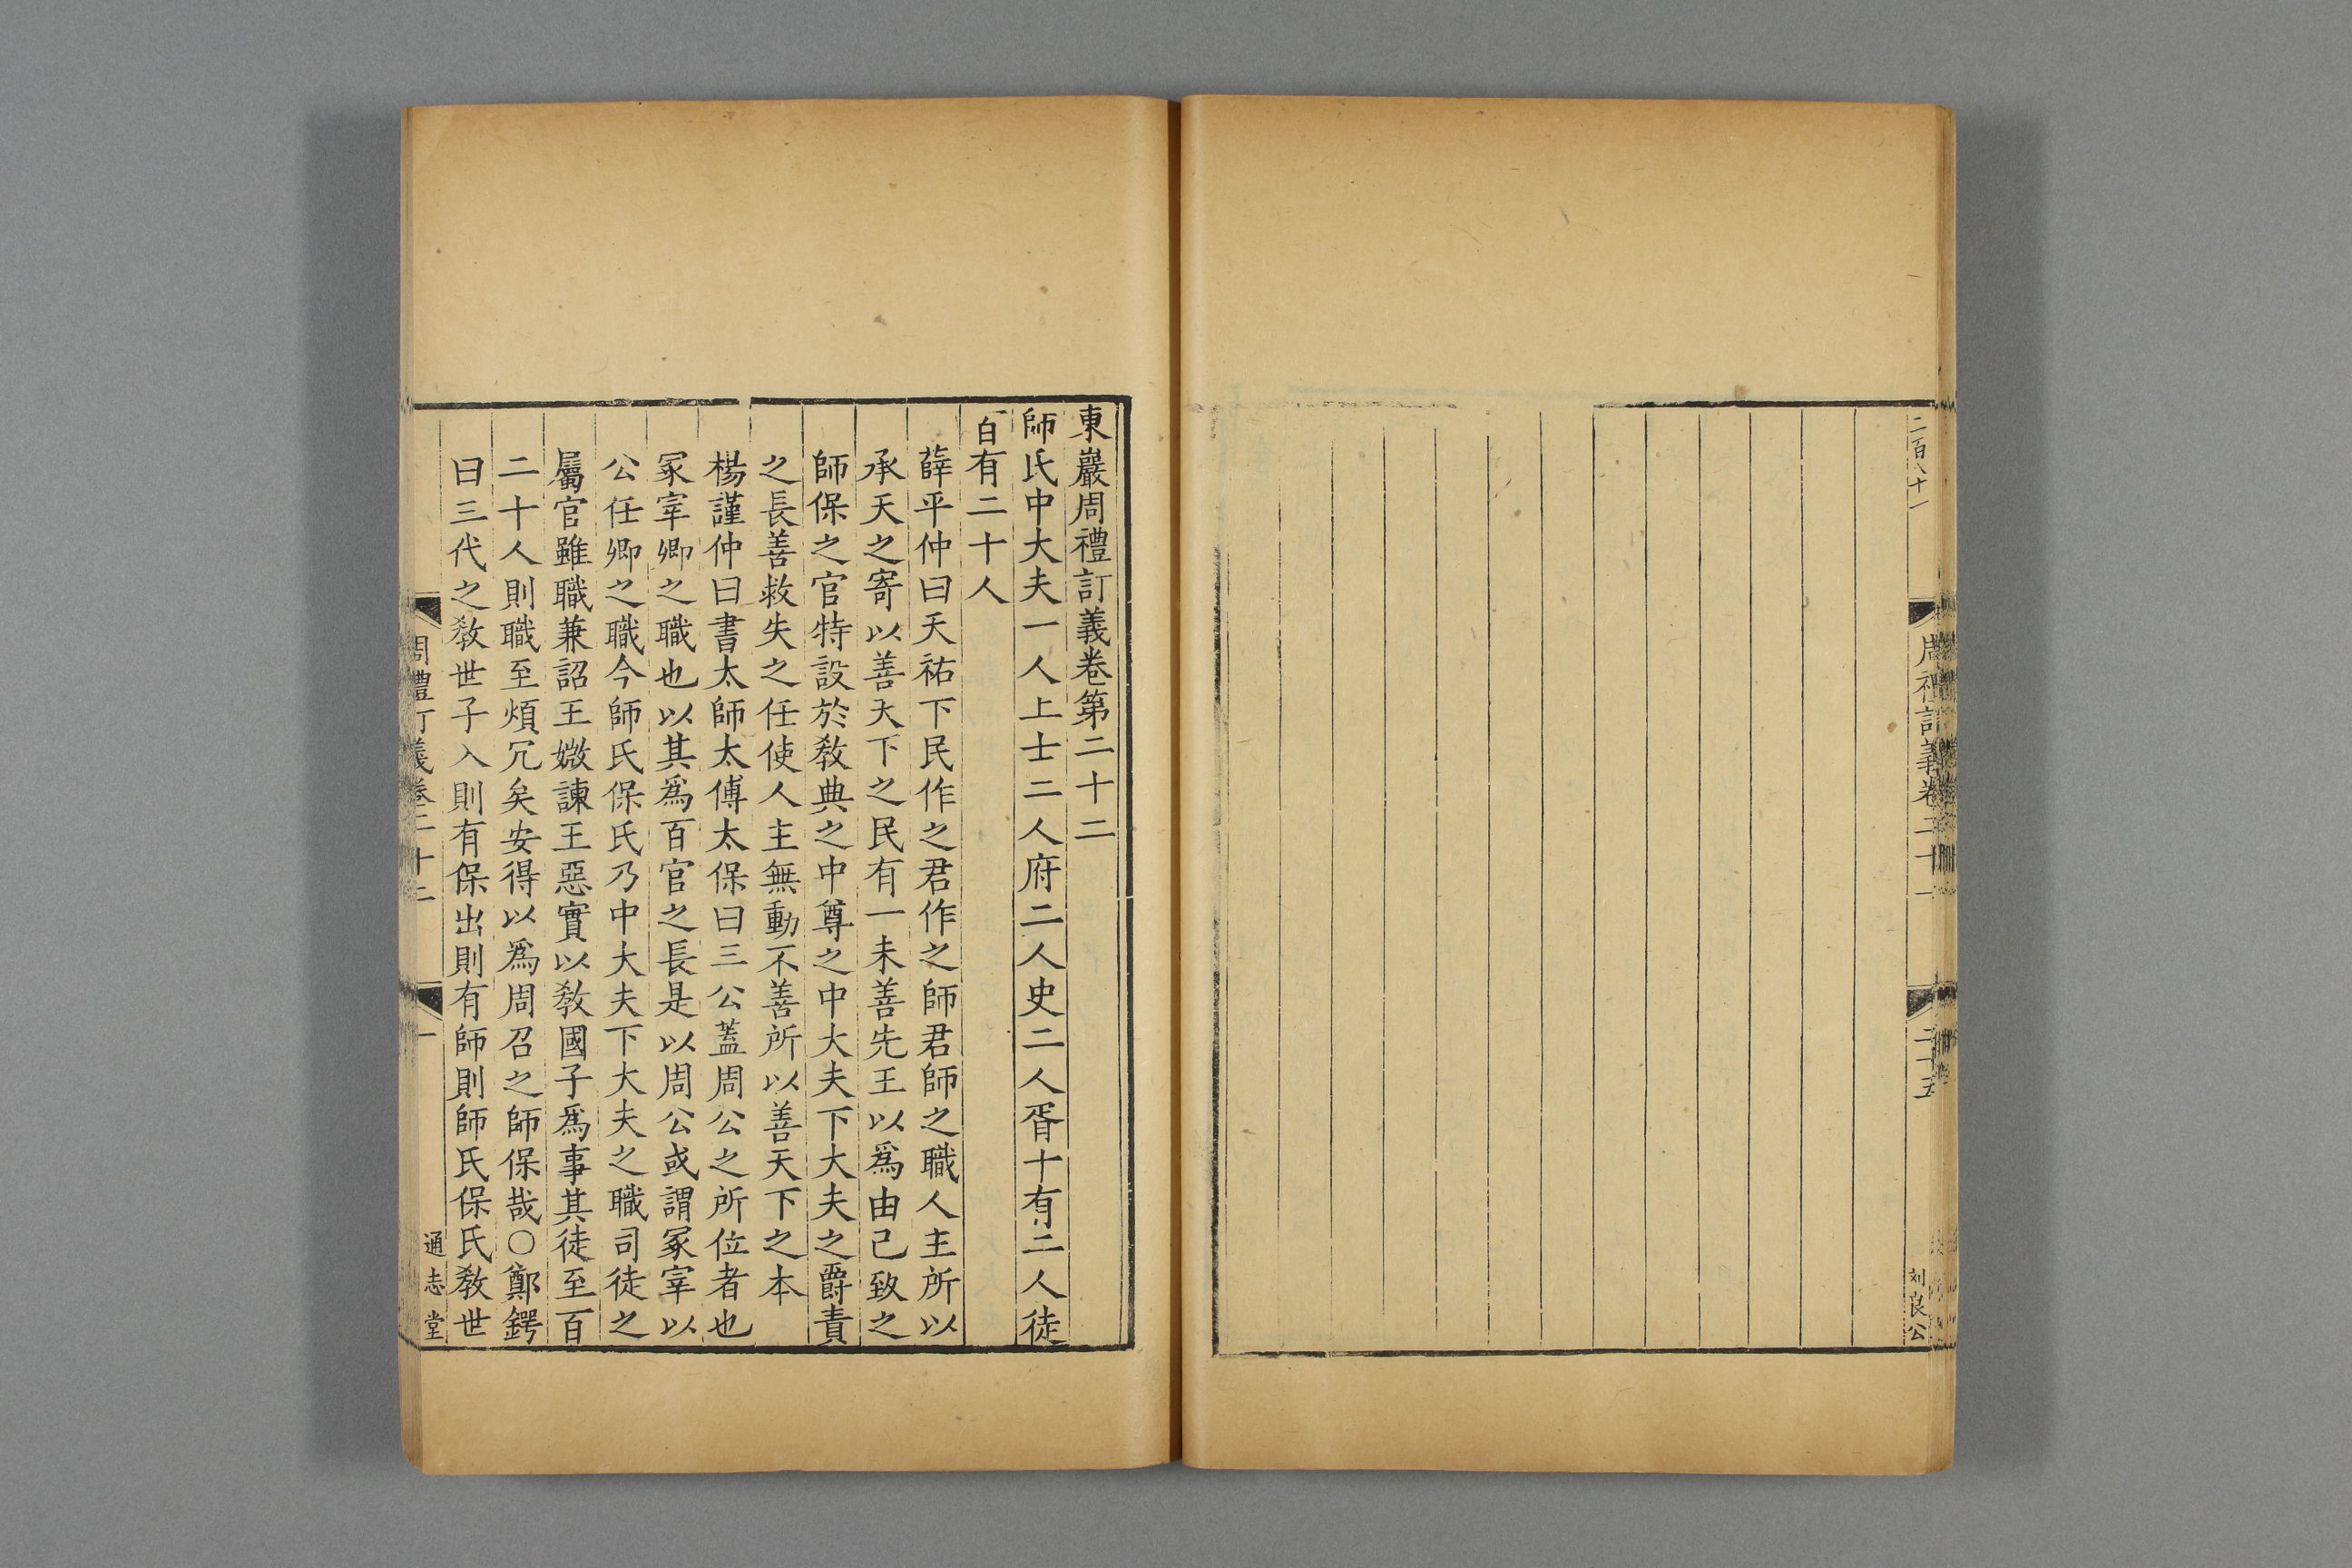 二百八十一
周禮訂義卷二十一
二十五
刘良公
東巖周禮訂義卷第二十二
師氏中大夫一人上士二人府二人史二人胥十有二人徒
百有二十人
薛平仲曰天祐下民作之君作之師君師之職人主所以
承天之寄以善天下之民有一未善先王以爲由己致之
師保之官特設於敎典之中尊之中大夫下大夫之爵責
之長善救失之任使人主無動不善所以善天下之本
楊謹仲曰書太師太傅太保曰三公蓋周公之所位者也
冢宰卿之職也以其爲百官之長是以周公或謂冢宰以
公任卿之職今師氏保氏乃中大夫下大夫之職司徒之
屬官雖職兼詔王媺諫王惡實以敎國子爲事其徒至百
二十人則職至煩冗矣安得以爲周召之師保哉○鄭鍔
曰三代之敎世子入則有保出則有師則師氏保氏敎世
周禮訂義卷二十二
一
通志堂